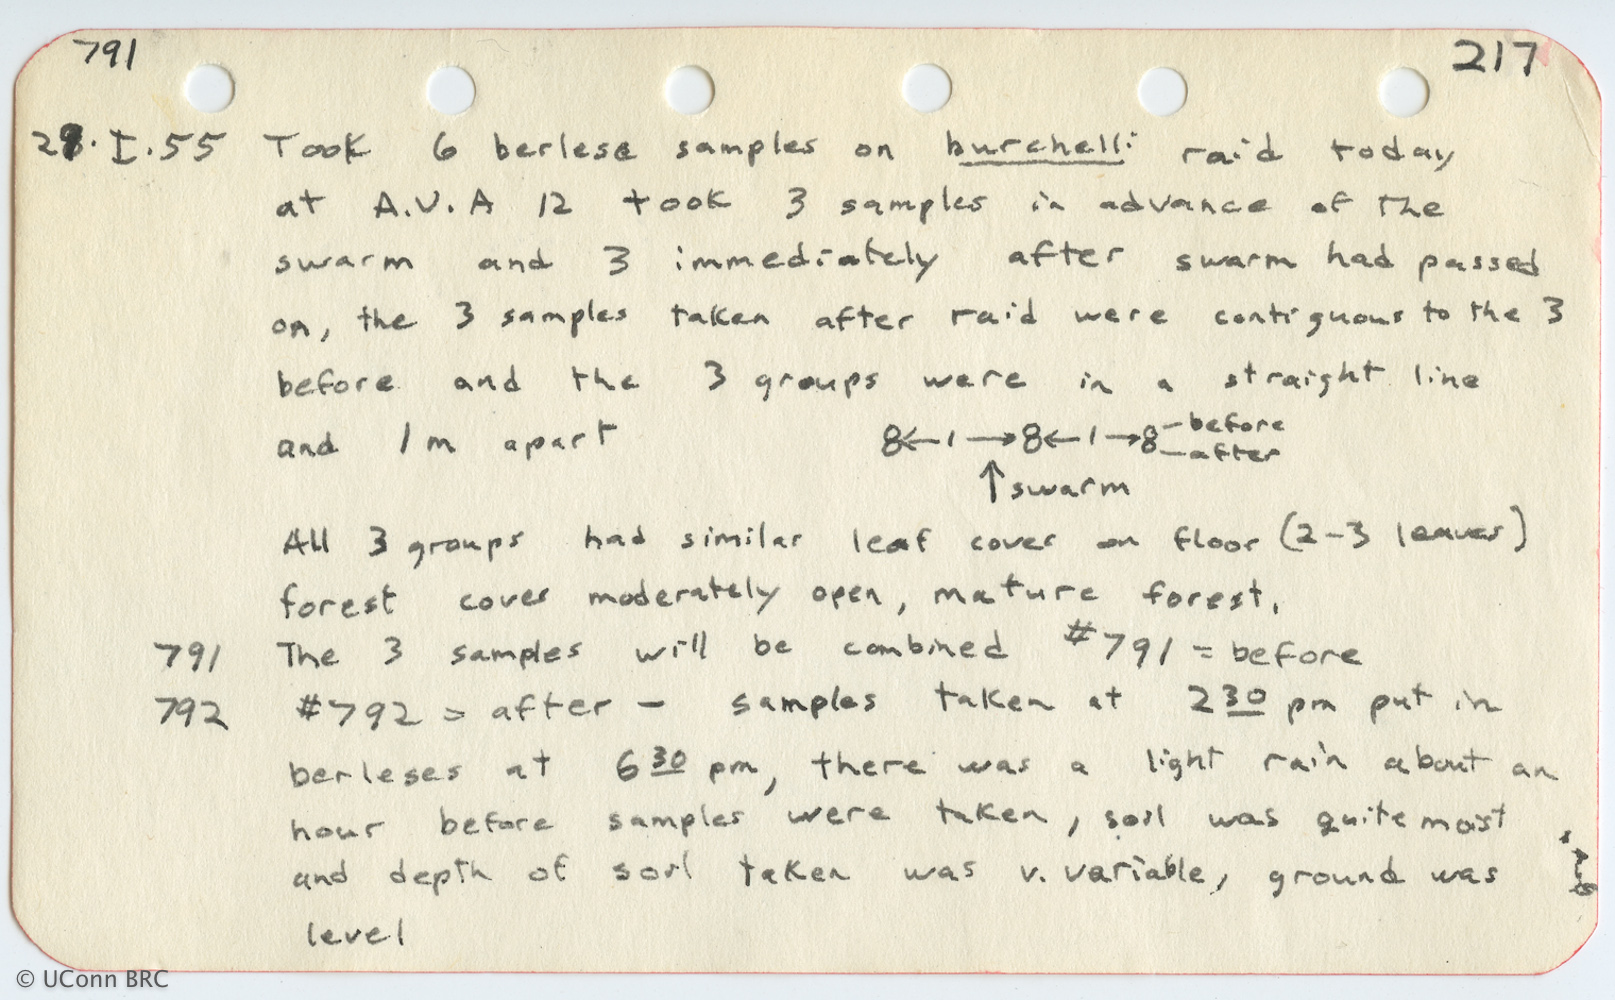 791
217
29.I.55 Took 6 berlese samples on burchelli raid today
at A.V.A 12 took 3 samples in advance of the
swarm and 3 immediately after swarm had passed
on, the 3 samples taken after raid were contiguous to the 3
before and the 3 groups were in a straight line
and 1m apart 8←1→8←1→8 -before
-after
↑swarm
All 3 groups had similar leaf cover on floor (2-3 leaves)
forest cover moderately open, mature forest.
791 The 3 samples will be combined #791 = before
792 #792 = after - samples taken at 230 pm put in
berleses at 630 pm, there was a light rain about an
hour before samples were taken, soil was quite moist
and depth of soil taken was v. variable, ground was
level
© UConn BRC